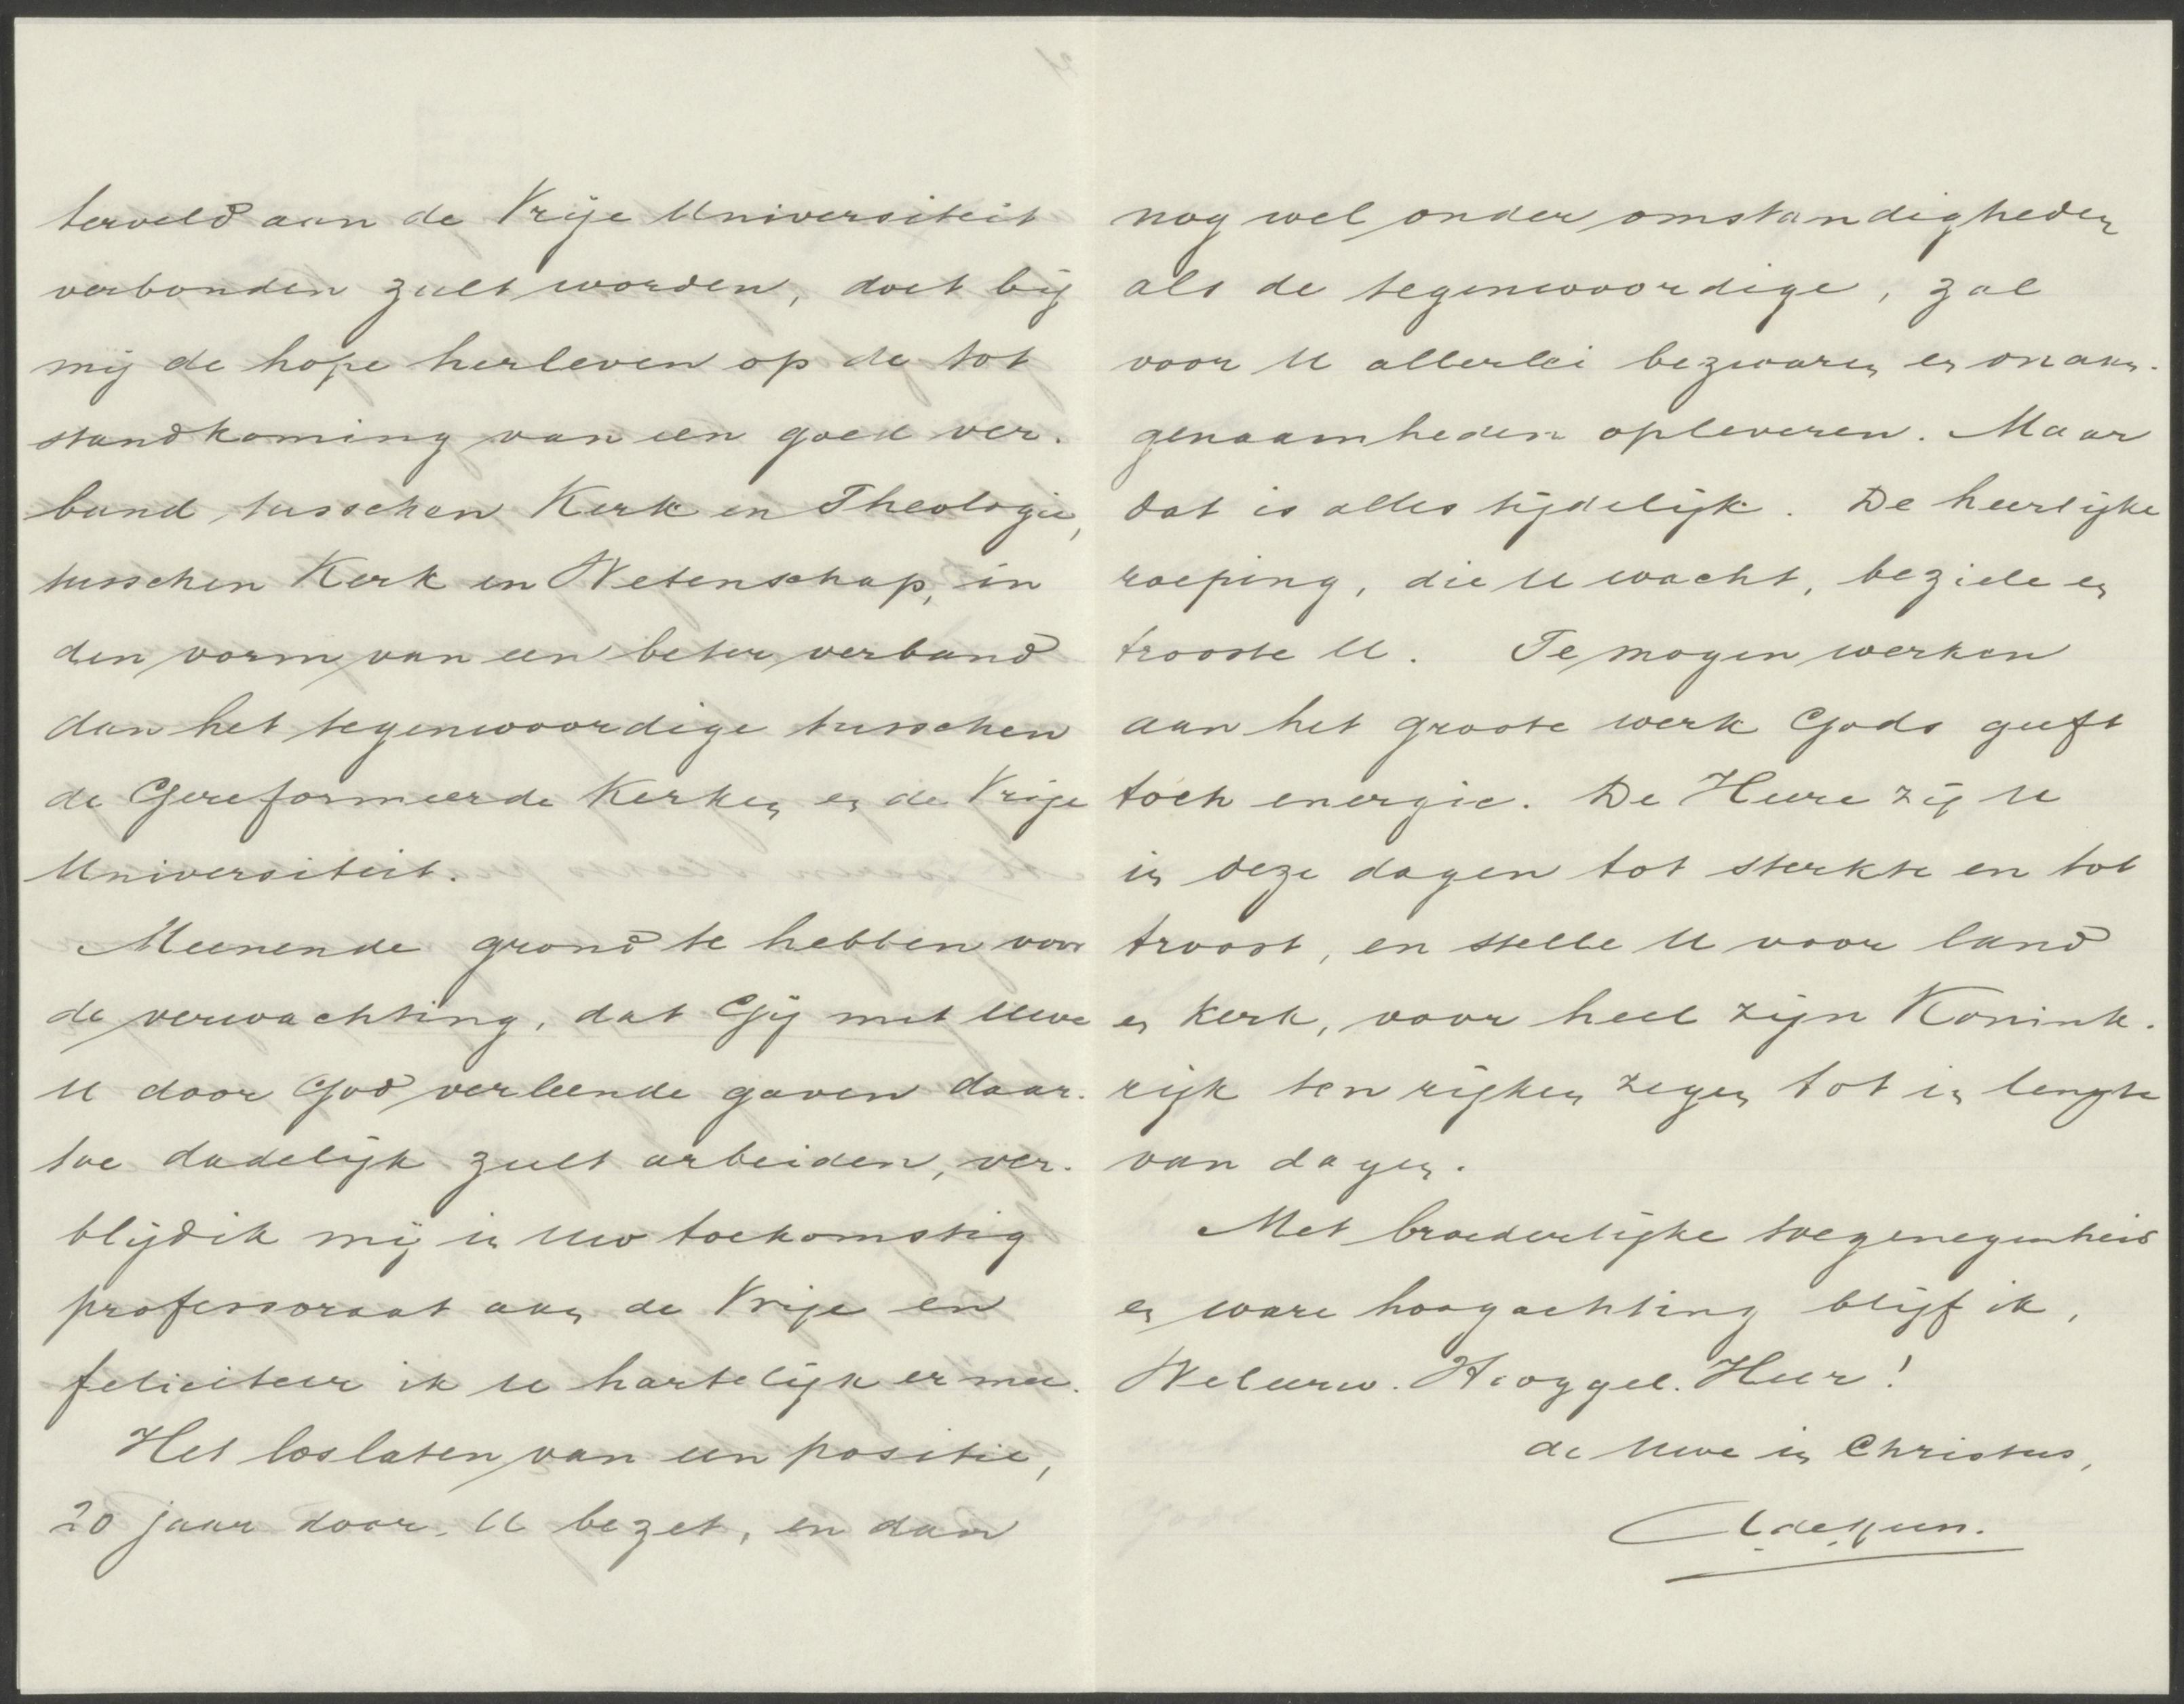 terveld aan de Vrije Universiteit
verbonden zult worden, doet bij
mij de hope herleven op de tot
standkoming van een goed ver-
band tusschen Kerk en Theologie,
tusschen Kerk en Wetenschap, in
den vorm van een beter verband
dan het tegenwoordige tusschen
de Gereformeerde Kerken en de Vrije
Universiteit.
Meenende grond te hebben voor
de verwachting, dat Gij met Uwe
U door God verleende gaven daar-
toe dadelijk zult arbeiden, ver-
blijd ik mij in Uw toekomstig
professoraat aan de Vrije en
feliciteer ik U hartelijk er mee.
Het loslaten van een positie,
20 jaar door U bezet, en dan
nog wel onder omstandigheden
als de tegenwoordige, zal
voor U allerlei bezwaren en onaan-
genaamheden opleveren. Maar
dat is alles tijdelijk. De heerlijke
roeping, die U wacht, beziele en
trooste U. Te mogen werken
aan het groote werk Gods geeft
toch energie. De Heere zij U
in deze dagen tot sterkte en tot
troost, en stelle U voor land
en kerk, voor heel zijn Konink-
rijk ten rijken zegen tot in lengte
van dagen.
Met broederlijke toegenegenheid
en ware hoogachting blijf ik,
Weleerw. Hooggel. Heer!
de Uwe in Christus,